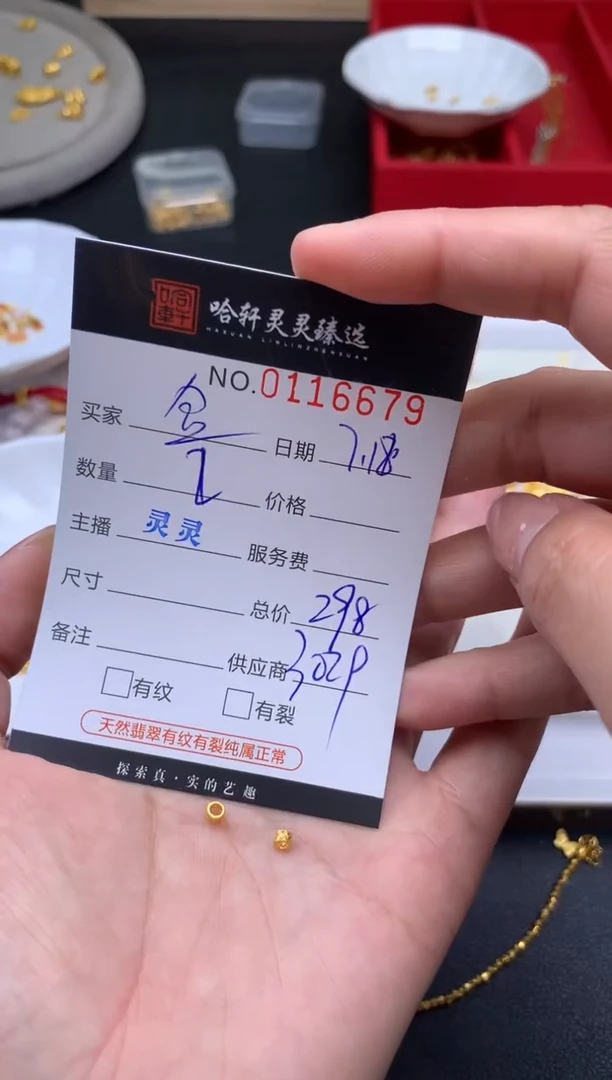 哈轩
哈轩灵灵臻选
HAXUAN LINLINZHENXUAN
NO.0116679
买家 日期 7.18
数量 2 价格
主播 灵灵 服务费
尺寸 总价 298
备注 供应商 3029
有纹 有裂
天然翡翠有纹有裂纯属正常
探索真·实的艺趣